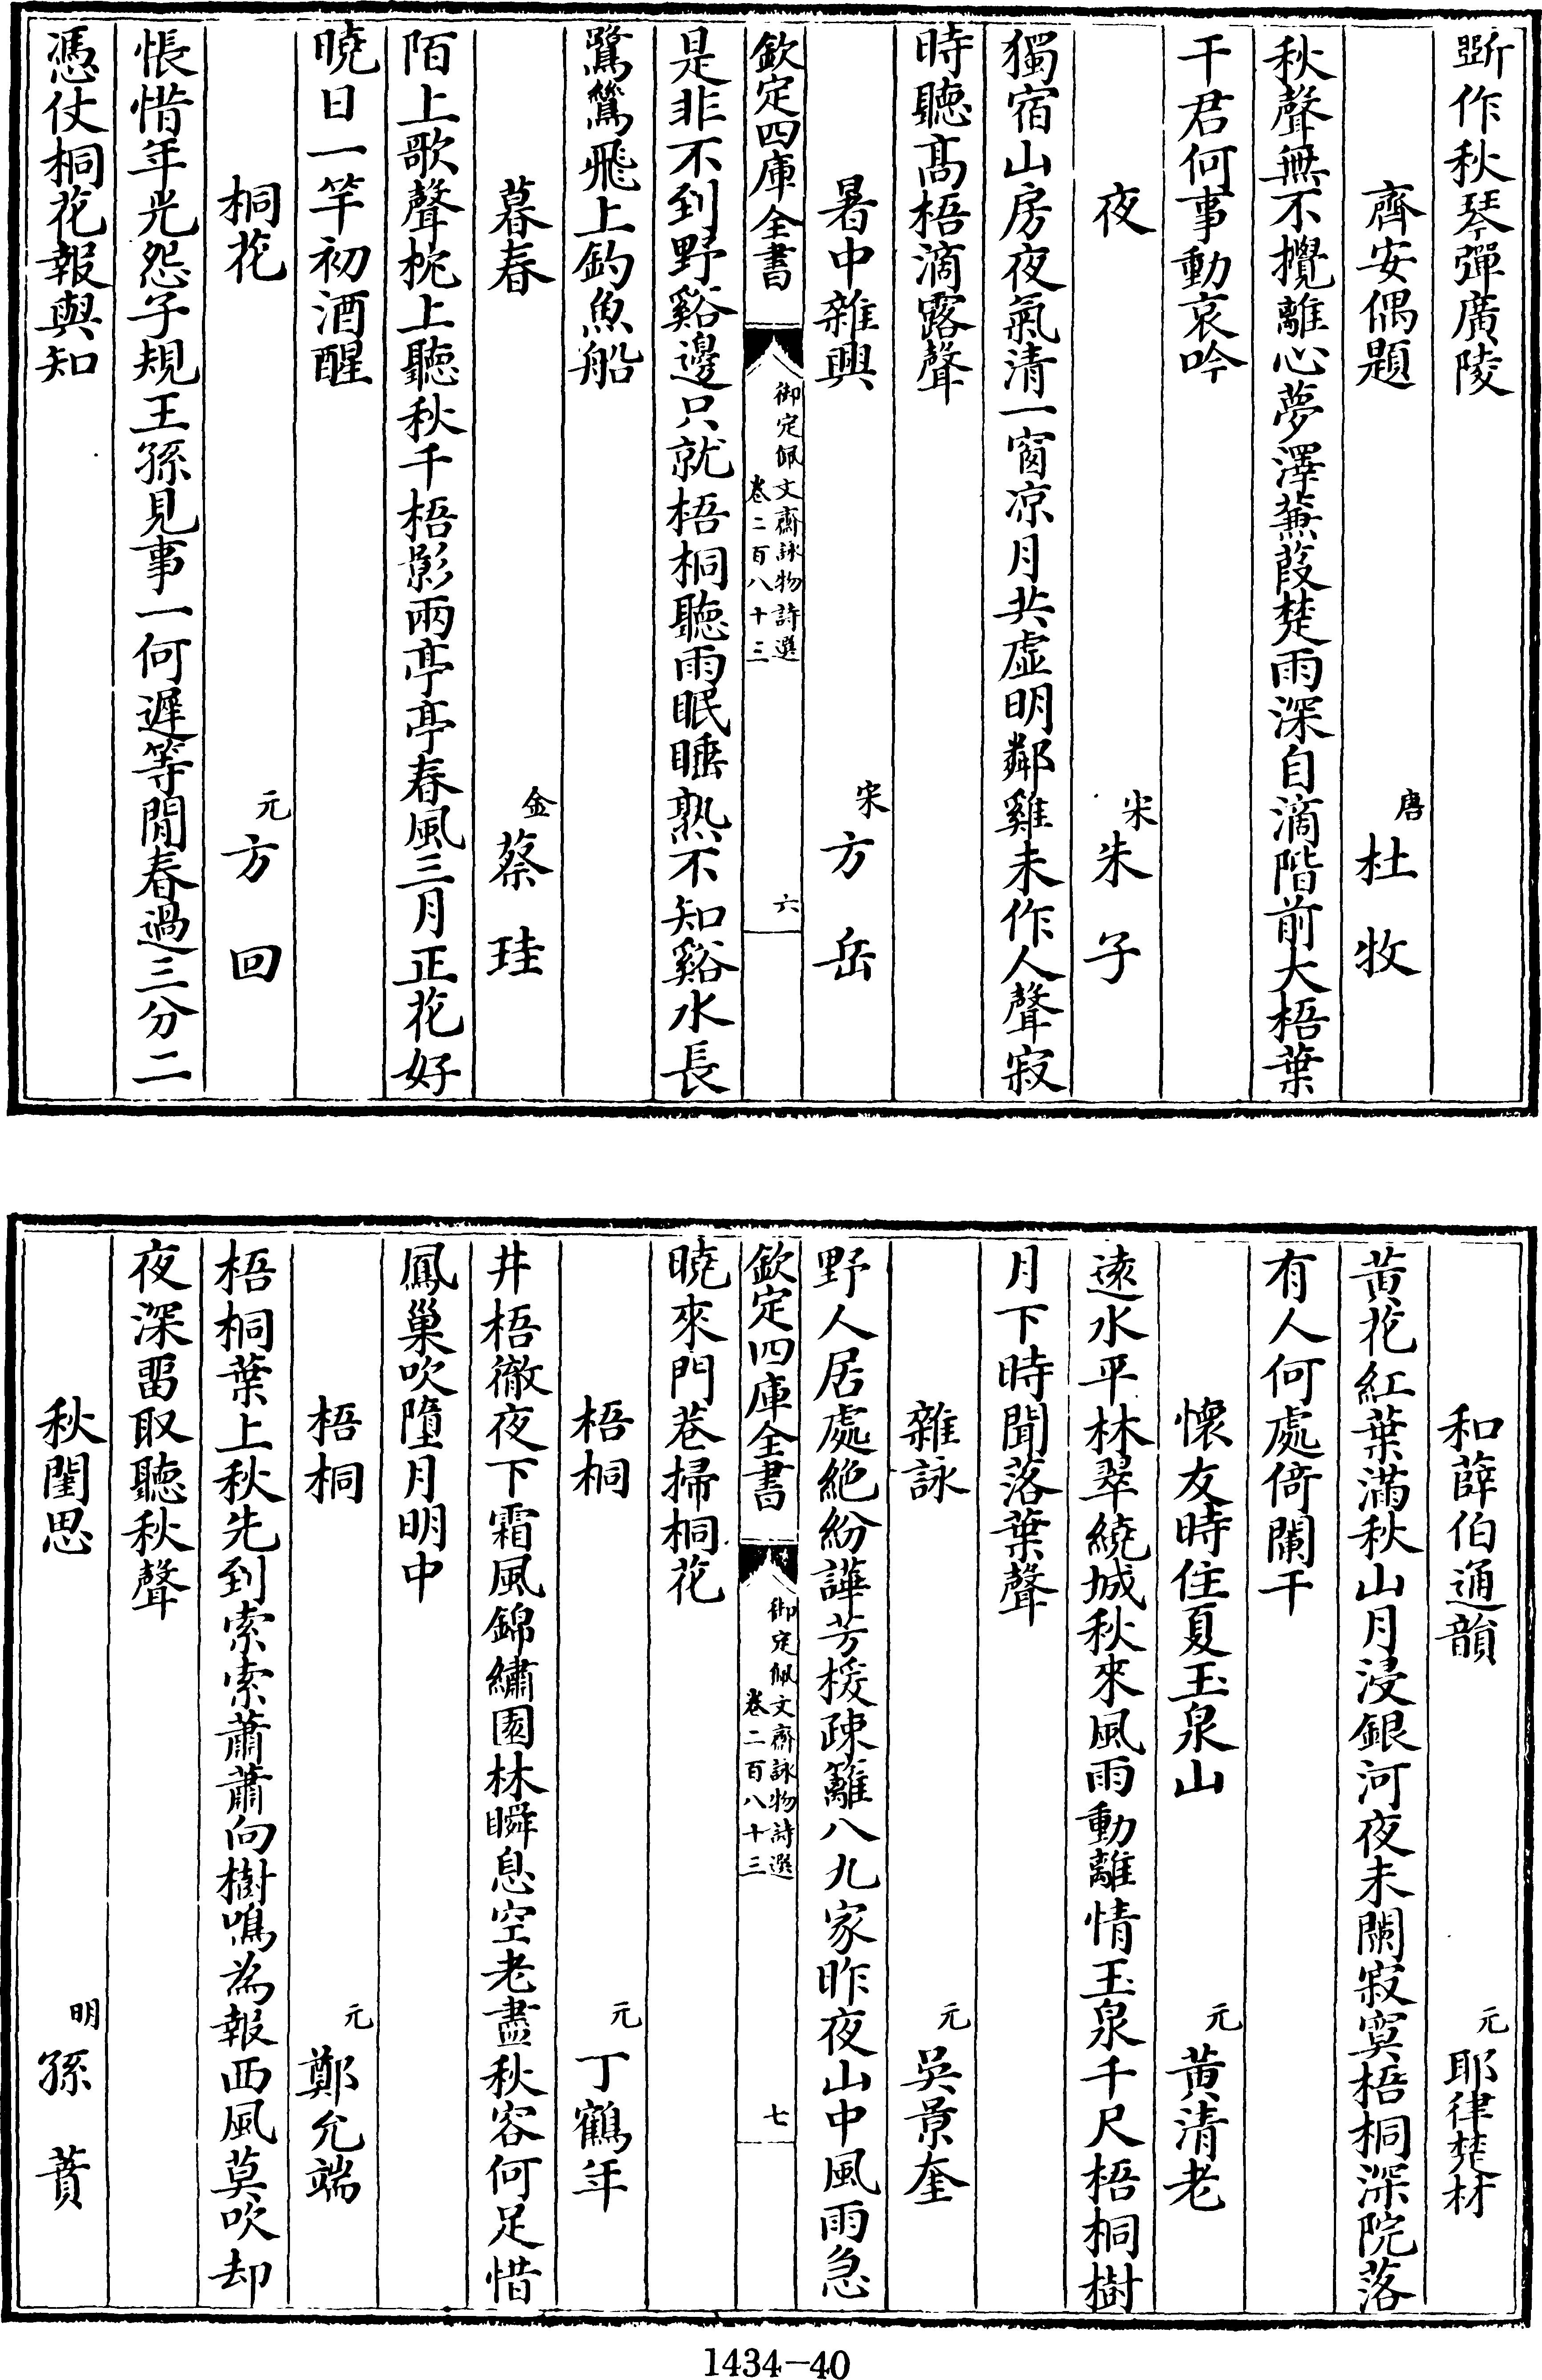 斲作秋琴彈廣陵
齊安偶題 唐 杜牧
秋聲無不攪離心夢澤蒹葭楚雨深自滴階前大梧葉
干君何事動哀吟
夜 宋 朱子
獨宿山房夜氣清一窗凉月共虛明鄰雞未作人聲寂
時聽髙梧滴露聲
暑中雜興 宋 方岳
欽定四庫全書 御定佩文齋詠物詩選 卷二百八十三 六
是非不到野谿邊只就梧桐聽雨眠睡熟不知谿水長
鷺鶿飛上釣魚船
暮春 金 蔡珪
陌上歌聲枕上聽秋千梧影兩亭亭春風三月正花好
曉日一竿初酒醒
桐花 元 方回
悵惜年光怨子規王孫見事一何遲等閒春過三分二
憑仗桐花報與知
和薛伯通韻 元 耶律楚材
黃花紅葉滿秋山月浸銀河夜未闌寂寞梧桐深院落
有人何處倚闌干
懷友時住夏玉泉山 元 黃清老
遠水平林翠繞城秋來風雨動離情玉泉千尺梧桐樹
月下時聞落葉聲
雜詠 元 吳景奎
野人居處絶紛譁芳援疎籬八九家昨夜山中風雨急
欽定四庫全書 御定佩文齋詠物詩選 卷二百八十三 七
曉來門巷掃桐花
梧桐 元 丁鶴年
井梧徹夜下霜風錦繡園林瞬息空老盡秋容何足惜
鳳巢吹墮月明中
梧桐 元 鄭允端
梧桐葉上秋先到索索蕭蕭向樹鳴為報西風莫吹却
夜深畱取聽秋聲
秋閨思 明 孫蕡
1434-40